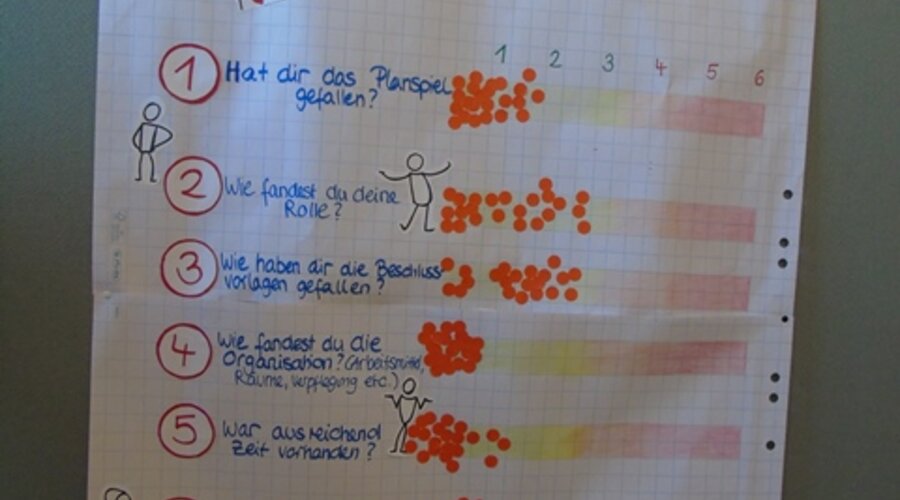 1 2 3 4 5 6
1 Hat dir das Planspiel
gefallen?
2 Wie fandest du deine
Rolle?
3 Wie haben dir die Beschluss
vorlagen gefallen?
4 Wie fandest du die
Organisation? (Arbeitsmittel,
Räume, Verpflegung etc.)
5 War ausreichend
Zeit vorhanden?